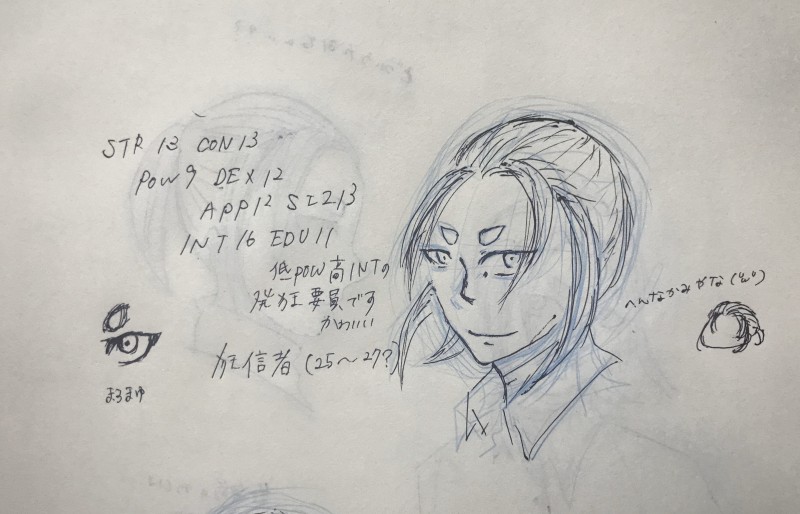 STR 13 CON13
POW9 DEX12
APP12 SIZ13
INT16 EDU11
低POW高INTの
発狂要員です
かわいい
狂信者(25〜27?)
まろまゆ
へんなかみやな